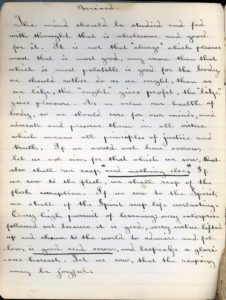 Second.
The mind should be studied and fed
with thought that is wholesome and good
for it. It is not that "always" which pleases
most that is most good, any more than that
which is most palatable is good for the body,
we should rather do as we ought, than as
we like, the "ought" gives profit, the "like"
gives pleasure. As we value our health of
body, so we should care for our minds, and
educate and preserve them in all virtue
which means all principles of justice and
truth. If we would not have sorrow,
let us not sin, for that which we sow, that
also shall we reap, and nothing else. If
we sow to the flesh, we shall reap of the
flesh corruption. If we sow to the Spirit,
we shall of the Spirit reap life everlasting.
Every high pursuit of learning, every enterprise
followed out because it is good, every virtue lifted
up and shown to the world to admire and fol-
low, is good seed sown, and bespeaks a glori-
ous harvest. Let us sow, that the reaping
may be joyful.